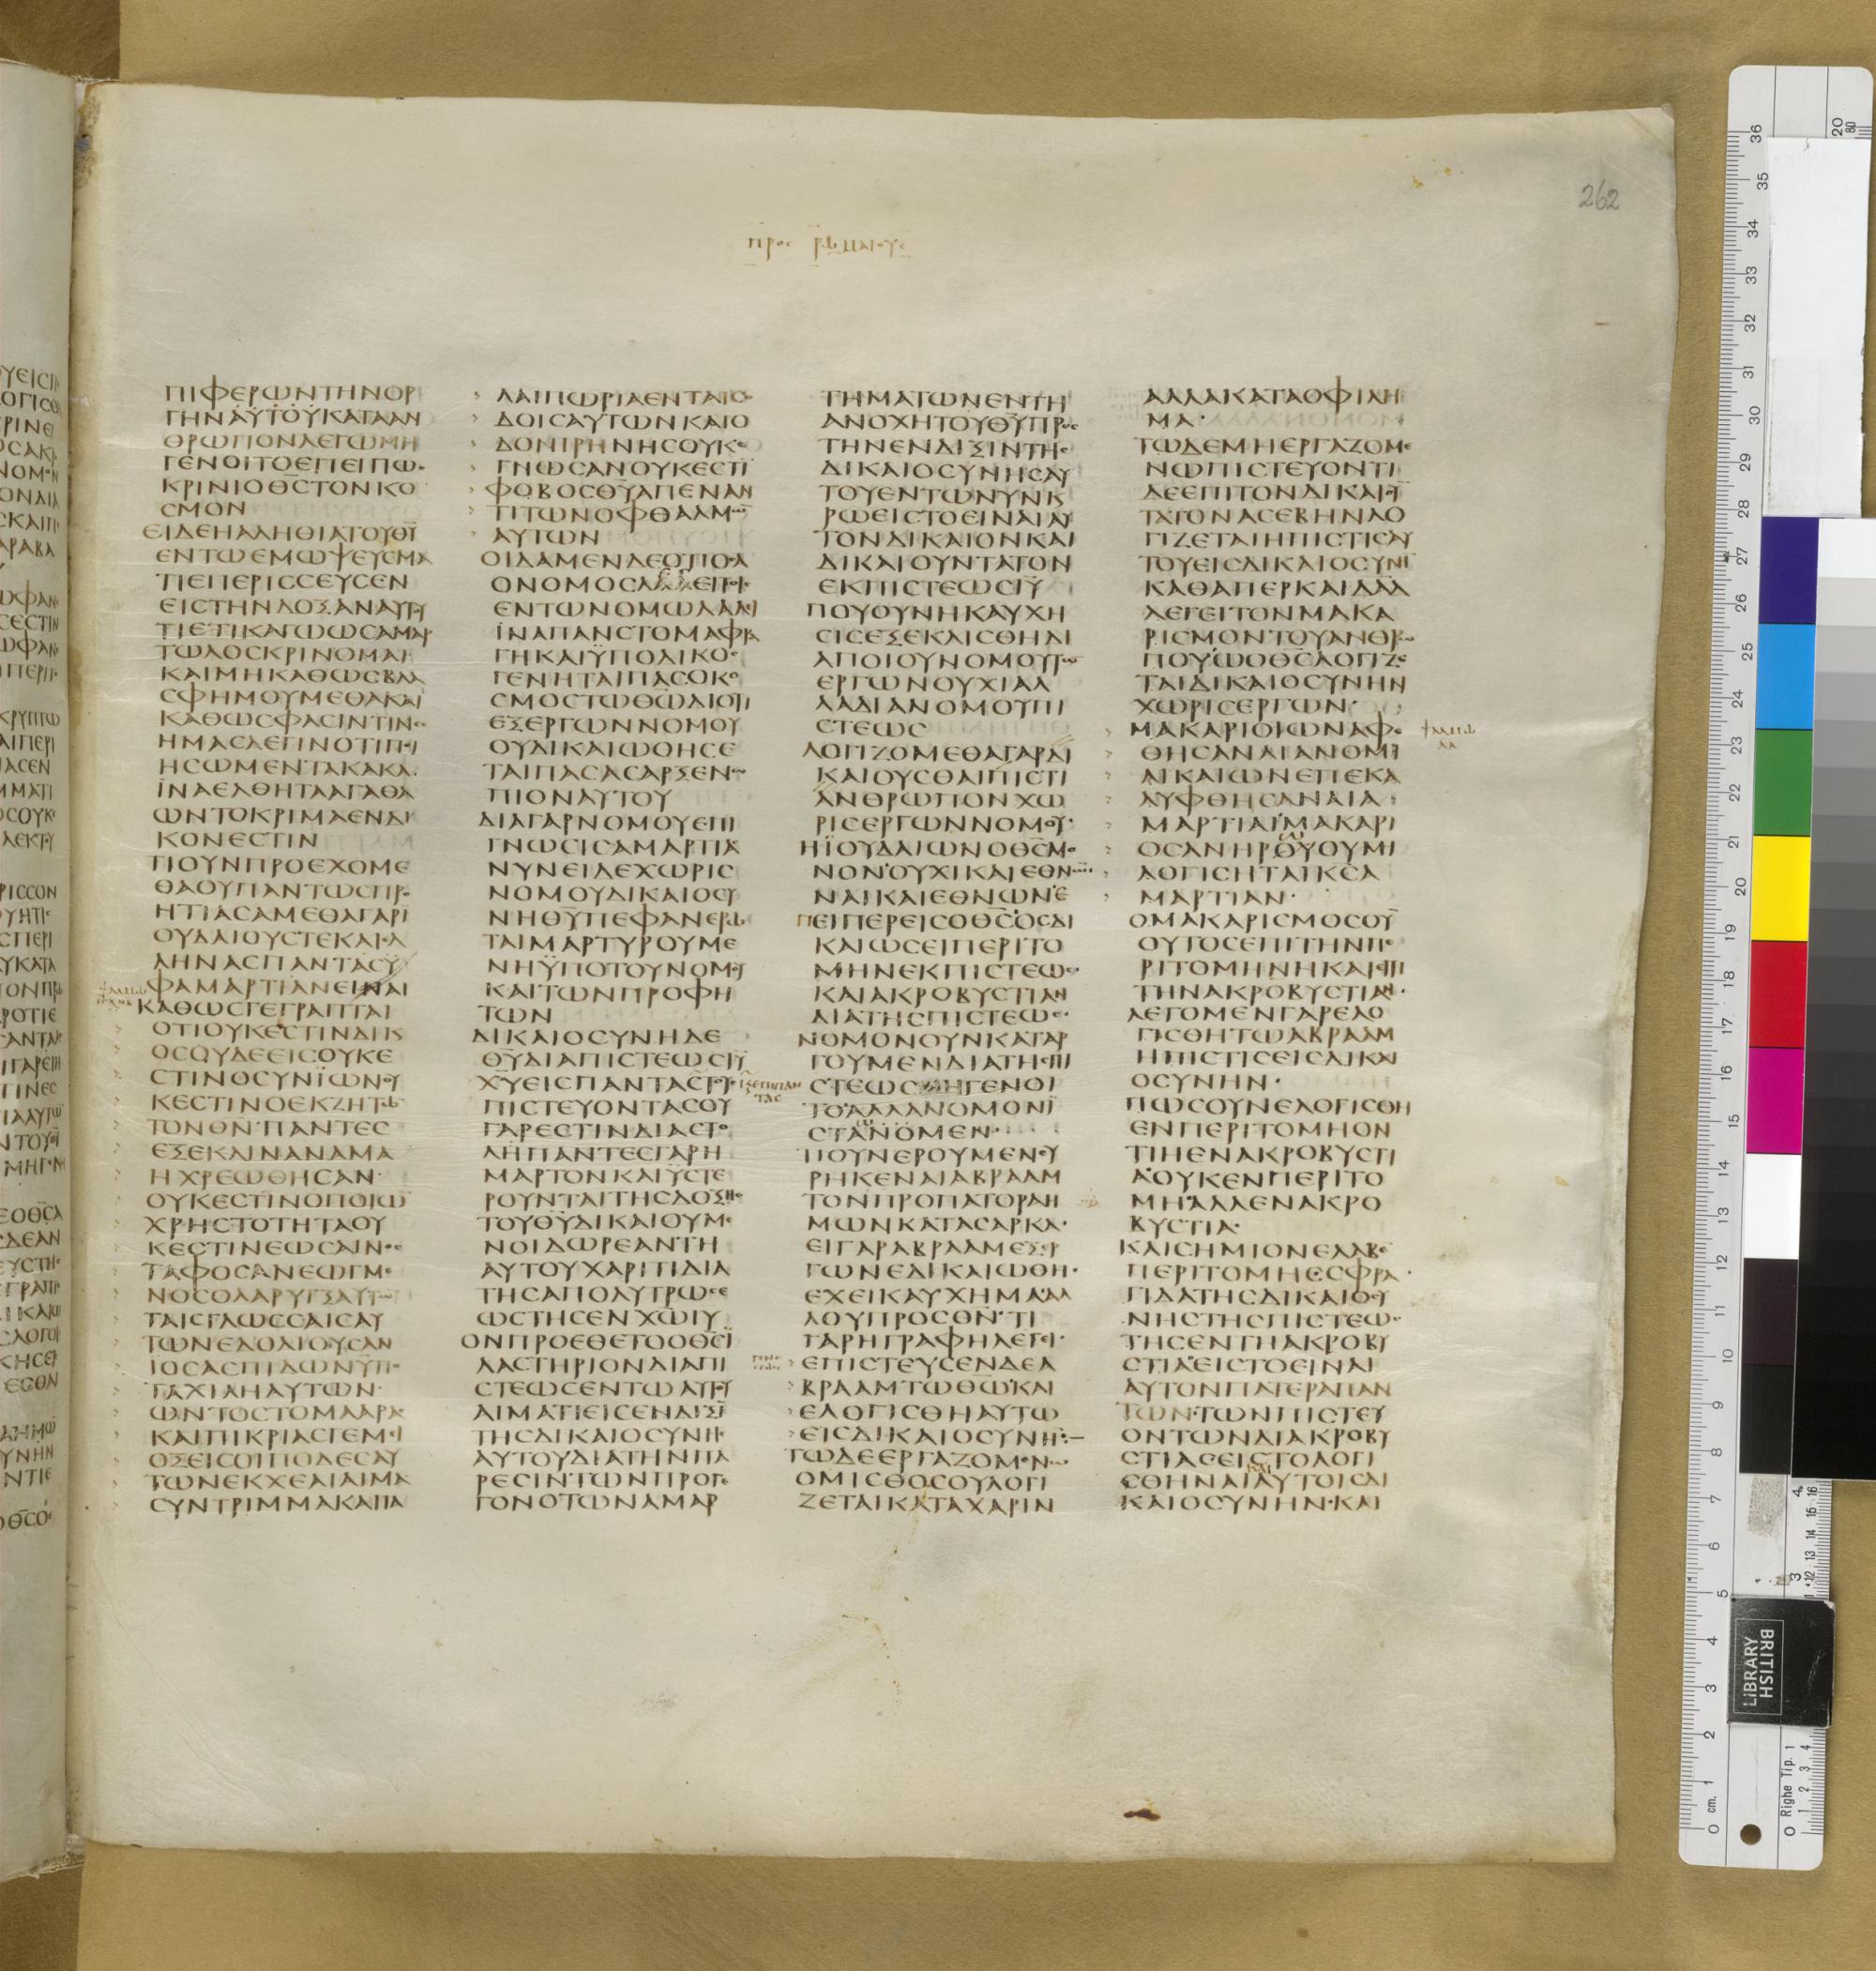 262
προς ρωμαιους
ΠΙΦΕΡΩΝΤΗΝΟΡ
ΓΗΝΑΥΤΟΥΚΑΤΑΑΝ
ΘΡΩΠΟΝΛΕΓΩΜΗ
ΓΕΝΟΙΤΟΕΠΕΙΠΩΣ
ΚΡΙΝΙΟΘΣΤΟΝΚΟ
ΣΜΟΝ
ΕΙΔΕΗΑΛΗΘΙΑΤΟΥΘΥ
ΕΝΤΩΕΜΩΨΕΥΣΜΑ
ΤΙΕΠΕΡΙΣΣΕΥΣΕΝ
ΕΙΣΤΗΝΔΟΞΑΝΑΥΤΟΥ
ΤΙΕΤΙΚΑΓΩΩΣΑΜΑΡ
ΤΩΛΟΣΚΡΙΝΟΜΑΙ
ΚΑΙΜΗΚΑΘΩΣΒΛΑ
ΣΦΗΜΟΥΜΕΘΑΚΑΙ
ΚΑΘΩΣΦΑΣΙΝΤΙΝΕΣ
ΗΜΑΣΛΕΓΙΝΟΤΙΠΟΙ
ΗΣΩΜΕΝΤΑΚΑΚΑ
ΪΝΑΕΛΘΗΤΑΑΓΑΘΑ
ΩΝΤΟΚΡΙΜΑΕΝΔΙ
ΚΟΝΕΣΤΙΝ
ΤΙΟΥΝΠΡΟΕΧΟΜΕ
ΘΑΟΥΠΑΝΤΩΣΠΡΟ
ΗΤΙΑΣΑΜΕΘΑΓΑΡΙ
ΟΥΔΑΙΟΥΣΤΕΚΑΙΕΛ
ΛΗΝΑΣΠΑΝΤΑΣΥ
ΦΑΜΑΡΤΙΑΝΕΙΝΑΙ
ΚΑΘΩΣΓΕΓΡΑΠΤΑΙ
ΟΤΙΟΥΚΕΣΤΙΝΔΙΚ
ΟΣΟΥΔΕΕΙΣΟΥΚΕ
ΣΤΙΝΟΣΥΝΪΩΝΟΥ
ΚΕΣΤΙΝΟΕΚΖΗΤΩ
ΤΟΝΘΝΠΑΝΤΕΣ
ΕΞΕΚΛΙΝΑΝΑΜΑ
ΗΧΡΕΩΘΗΣΑΝ
ΟΥΚΕΣΤΙΝΟΠΟΙΩ
ΧΡΗΣΤΟΤΗΤΑΟΥ
ΚΕΣΤΙΝΕΩΣΑΙΝΟΣ
ΤΑΦΟΣΑΝΕΩΓΜΕ
ΝΟΣΟΛΑΡΥΓΞΑΥΤΩ
ΤΑΙΣΓΛΩΣΣΑΙΣΑΥ
ΤΩΝΕΔΟΛΙΟΥΣΑΝ
ΙΟΣΑΣΠΙΔΩΝΫΠΟ
ΤΑΧΙΛΗΑΥΤΩΝ
ΩΝΤΟΣΤΟΜΑΑΡΑΣ
ΚΑΙΠΙΚΡΙΑΣΓΕΜΕΙ
ΟΞΕΙΣΟΙΠΟΔΕΣΑΥ
ΤΩΝΕΚΧΕΑΙΑΙΜΑ
ΣΥΝΤΡΙΜΜΑΚΑΙΤΑ
ΛΑΙΠΩΡΙΑΕΝΤΑΙΣΟ
ΔΟΙΣΑΥΤΩΝΚΑΙΟ
ΔΟΝΙΡΗΝΗΣΟΥΚΕ
ΓΝΩΣΑΝΟΥΚΕΣΤΙ
ΦΟΒΟΣΘΥΑΠΕΝΑΝ
ΤΙΤΩΝΟΦΘΑΛΜΩ
ΑΥΤΩΝ
ΟΙΔΑΜΕΝΔΕΟΤΙΟΣΑ
ΟΝΟΜΟΣΛΑΛΕΙΤΟΙΣ
ΕΝΤΩΝΟΜΩΛΑΛΕΙ
ΪΝΑΠΑΝΣΤΟΜΑΦΡΑ
ΓΗΚΑΙΫΠΟΔΙΚΟΣ
ΓΕΝΗΤΑΙΠΑΣΟΚΟ
ΣΜΟΣΤΩΘΩΔΙΟΤΙ
ΕΞΕΡΓΩΝΝΟΜΟΥ
ΟΥΔΙΚΑΙΩΘΗΣΕ
ΤΑΙΠΑΣΑΣΑΡΞΕΝΩ
ΠΙΟΝΑΥΤΟΥ
ΔΙΑΓΑΡΝΟΜΟΥΕΠΙ
ΓΝΩΣΙΣΑΜΑΡΤΙΑΣ
ΝΥΝΕΙΔΕΧΩΡΙΣ
ΝΟΜΟΥΔΙΚΑΙΟΣΥ
ΝΗΘΥΠΕΦΑΝΕΡΩ
ΤΑΙΜΑΡΤΥΡΟΥΜΕ
ΝΗΫΠΟΤΟΥΝΟΜΟΥ
ΚΑΙΤΩΝΠΡΟΦΗ
ΤΩΝ
ΔΙΚΑΙΟΣΥΝΗΔΕ
ΘΥΔΙΑΠΙΣΤΕΩΣΙΥ
ΧΥΕΙΣΠΑΝΤΑΣΤΟΥΣ
ΠΙΣΤΕΥΟΝΤΑΣΟΥ
ΓΑΡΕΣΤΙΝΔΙΑΣΤΟ
ΛΗΠΑΝΤΕΣΓΑΡΗ
ΜΑΡΤΟΝΚΑΙΫΣΤΕ
ΡΟΥΝΤΑΙΤΗΣΔΟΞΗΣ
ΤΟΥΘΥΔΙΚΑΙΟΥΜΕ
ΝΟΙΔΩΡΕΑΝΤΗ
ΑΥΤΟΥΧΑΡΙΤΙΔΙΑ
ΤΗΣΑΠΟΛΥΤΡΩΣΕ
ΩΣΤΗΣΕΝΧΩΙΥ
ΟΝΠΡΟΕΘΕΤΟΟΘΣΪ
ΛΑΣΤΗΡΙΟΝΔΙΑΠΙ
ΣΤΕΩΣΕΝΤΩΑΥΤΟΥ
ΑΙΜΑΤΙΕΙΣΕΝΔΙΞΙ
ΤΗΣΔΙΚΑΙΟΣΥΝΗΣ
ΑΥΤΟΥΔΙΑΤΗΝΠΑ
ΡΕΣΙΝΤΩΝΠΡΟΓΕ
ΓΟΝΟΤΩΝΑΜΑΡ
ΤΗΜΑΤΩΝΕΝΤΗ
ΑΝΟΧΗΤΟΥΘΥΠΡΟΣ
ΤΗΝΕΝΔΙΞΙΝΤΗΣ
ΔΙΚΑΙΟΣΥΝΗΣΑΥ
ΤΟΥΕΝΤΩΝΥΝΚ
ΡΩΕΙΣΤΟΕΙΝΑΙΑΥ
ΤΟΝΔΙΚΑΙΟΝΚΑΙ
ΔΙΚΑΙΟΥΝΤΑΤΟΝ
ΕΚΠΙΣΤΕΩΣΙΥ
ΠΟΥΟΥΝΗΚΑΥΧΗ
ΣΙΣΕΞΕΚΛΙΣΘΗΔΙ
ΑΠΟΙΟΥΝΟΜΟΥΤΩ
ΕΡΓΩΝΟΥΧΙΑΛ
ΛΑΔΙΑΝΟΜΟΥΠΙ
ΣΤΕΩΣ
ΛΟΓΙΖΟΜΕΘΑΓΑΡΔΙ
ΚΑΙΟΥΣΘΑΙΠΙΣΤΙ
ΑΝΘΡΩΠΟΝΧΩ
ΡΙΣΕΡΓΩΝΝΟΜΟΥ
ΗΪΟΥΔΑΙΩΝΟΘΣΜΟ
ΝΟΝΟΥΧΙΚΑΙΕΘΝΩΝ
ΝΑΙΚΑΙΕΘΝΩΝΕ
ΠΕΙΠΕΡΕΙΣΟΘΣΟΣΔΙ
ΚΑΙΩΣΕΙΠΕΡΙΤΟ
ΜΗΝΕΚΠΙΣΤΕΩΣ
ΚΑΙΑΚΡΟΒΥΣΤΙΑΝ
ΔΙΑΤΗΣΠΙΣΤΕΩΣ
ΝΟΜΟΝΟΥΝΚΑΤΑΡ
ΓΟΥΜΕΝΔΙΑΤΗΣΠΙ
ΣΤΕΩΣΜΗΓΕΝΟΙ
ΤΟΑΛΛΑΝΟΜΟΝΙ
ΣΤΑΝΟΜΕΝ
ΤΙΟΥΝΕΡΟΥΜΕΝΕΥ
ΡΗΚΕΝΑΙΑΒΡΑΑΜ
ΤΟΝΠΡΟΠΑΤΟΡΑΗ
ΜΩΝΚΑΤΑΣΑΡΚΑ
ΕΙΓΑΡΑΒΡΑΑΜΕΞΕΡ
ΓΩΝΕΔΙΚΑΙΩΘΗ
ΕΧΕΙΚΑΥΧΗΜΑΑΛ
ΛΟΥΠΡΟΣΘΝΤΙ
ΓΑΡΗΓΡΑΦΗΛΕΓΕΙ
ΕΠΙΣΤΕΥΣΕΝΔΕΑ
ΒΡΑΑΜΤΩΘΩΚΑΙ
ΕΛΟΓΙΣΘΗΑΥΤΩ
ΕΙΣΔΙΚΑΙΟΣΥΝΗΝ
ΤΩΔΕΕΡΓΑΖΟΜΕΝΩ
ΟΜΙΣΘΟΣΟΥΛΟΓΙ
ΖΕΤΑΙΚΑΤΑΧΑΡΙΝ
ΑΛΛΑΚΑΤΑΟΦΙΛΗ
ΜΑ
ΤΩΔΕΜΗΕΡΓΑΖΟΜΕ
ΝΩΠΙΣΤΕΥΟΝΤΙ
ΔΕΕΠΙΤΟΝΔΙΚΑΙΟΥ
ΤΑΤΟΝΑΣΕΒΗΝΛΟ
ΓΙΖΕΤΑΙΗΠΙΣΤΙΣΑΥ
ΤΟΥΕΙΣΔΙΚΑΙΟΣΥΝΗ
ΚΑΘΑΠΕΡΚΑΙΔΑΔ
ΛΕΓΕΙΤΟΝΜΑΚΑ
ΡΙΣΜΟΝΤΟΥΑΝΘΡΩ
ΠΟΥΩΟΘΣΛΟΓΙΖΕ
ΤΑΙΔΙΚΑΙΟΣΥΝΗΝ
ΧΩΡΙΣΕΡΓΩΝ
ΜΑΚΑΡΙΟΙΩΝΑΦΕ
ΘΗΣΑΝΑΙΑΝΟΜΙ
ΑΙΚΑΙΩΝΕΠΕΚΑ
ΛΥΦΘΗΣΑΝΑΙΑ
ΜΑΡΤΙΑΙΜΑΚΑΡΙ
ΟΣΑΝΗΡΟΥΟΥΜΙ
ΛΟΓΙΣΗΤΑΙΚΣΑ
ΜΑΡΤΙΑΝ
ΟΜΑΚΑΡΙΣΜΟΣΟΥ
ΟΥΤΟΣΕΠΙΤΗΝΠΕ
ΡΙΤΟΜΗΝΗΚΑΙΕΠΙ
ΤΗΝΑΚΡΟΒΥΣΤΙΑΝ
ΛΕΓΟΜΕΝΓΑΡΕΛΟ
ΓΙΣΘΗΤΩΑΒΡΑΑΜ
ΗΠΙΣΤΙΣΕΙΣΔΙΚΑΙ
ΟΣΥΝΗΝ
ΠΩΣΟΥΝΕΛΟΓΙΣΘΗ
ΕΝΠΕΡΙΤΟΜΗΟΝ
ΤΙΗΕΝΑΚΡΟΒΥΣΤΙ
ΑΟΥΚΕΝΠΕΡΙΤΟ
ΜΗΑΛΛΕΝΑΚΡΟ
ΒΥΣΤΙΑ
ΚΑΙΣΗΜΙΟΝΕΛΑΒΕ
ΠΕΡΙΤΟΜΗΣΣΦΡΑ
ΓΙΔΑΤΗΣΔΙΚΑΙΟΣΥ
ΝΗΣΤΗΣΠΙΣΤΕΩΣ
ΤΗΣΕΝΤΗΑΚΡΟΒΥ
ΣΤΙΑΕΙΣΤΟΕΙΝΑΙ
ΑΥΤΟΝΠΑΤΕΡΑΠΑΝ
ΤΩΝΤΩΝΠΙΣΤΕΥ
ΟΝΤΩΝΔΙΑΚΡΟΒΥ
ΣΤΙΑΣΕΙΣΤΟΛΟΓΙ
ΣΘΗΝΑΙΑΥΤΟΙΣΔΙ
ΚΑΙΟΣΥΝΗΝΚΑΙ
BRITISH
LIBRARY